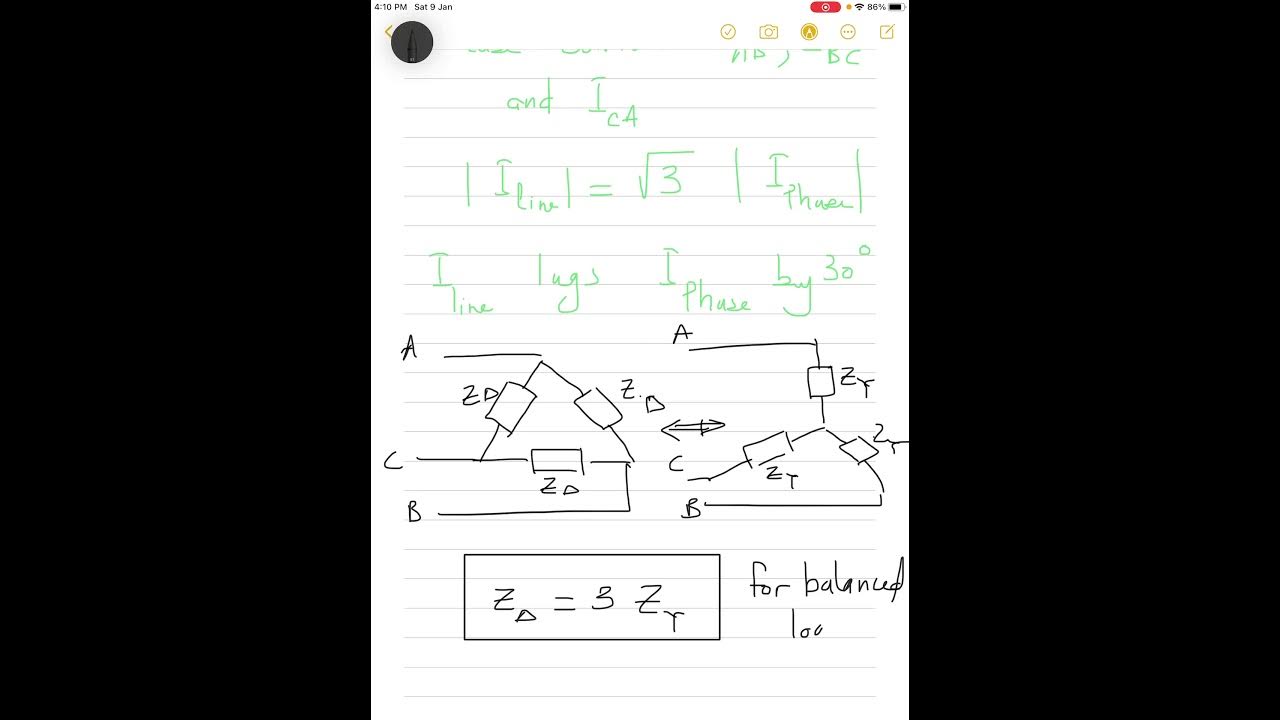 4:10 PM Sat 9 Jan 86%
and I_CA
|I_line| = √3 |I_Phase|
I_line lags I_Phase by 30°
A
Z_Δ Z_Δ
C
Z_Δ
B
A
Z_Y
Z_Y
C
Z_Y
B
Z_Δ = 3 Z_Y
for balanced
loa